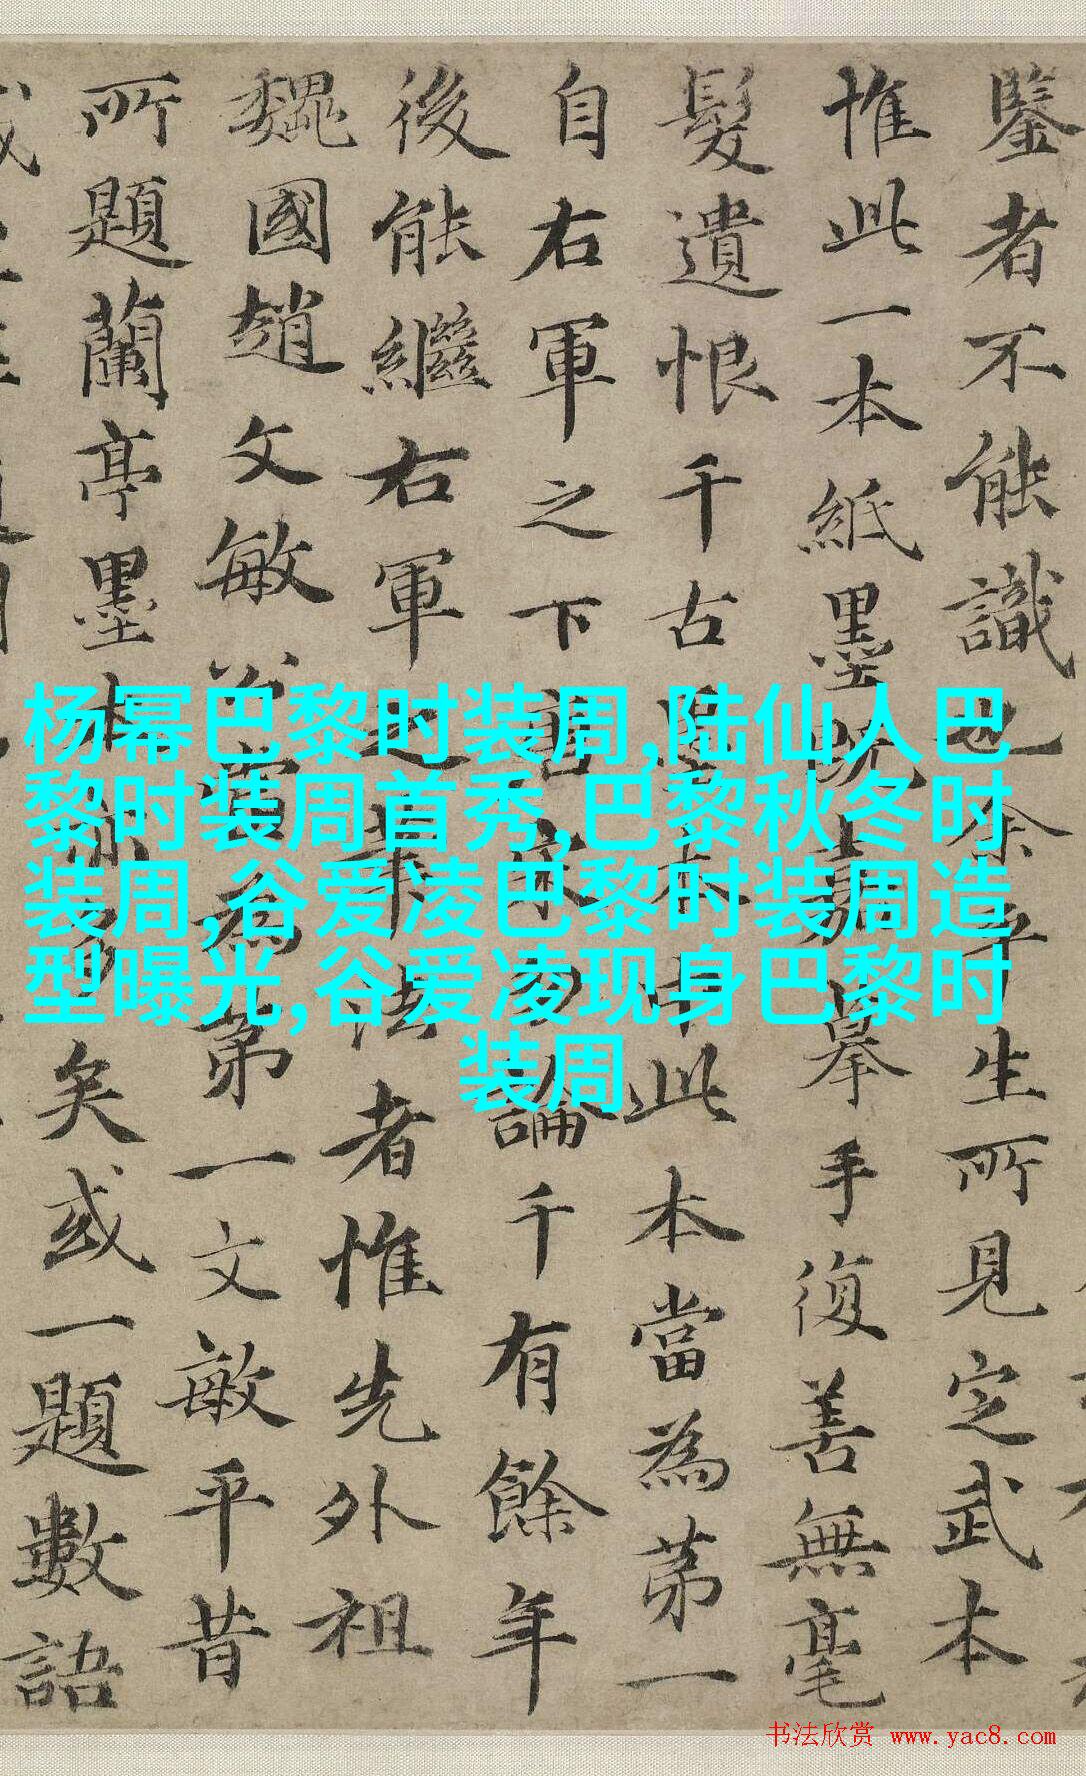 鑒者不能識也余平生所見定武本
惟此一本紙墨既嘉摹手復善無毫
髮遺恨千古本中此本當為苐一
自右軍之下唐宋論千有餘年
後能繼右軍之筆法者惟先外祖
魏國趙文敏公當為苐一文敏平昔
所題蘭亭墨本亦多矣或一題數語
杨幂巴黎时装周,陆仙人巴
黎时装周首秀,巴黎秋冬时
装周,谷爱凌巴黎时装周造
型曝光,谷爱凌现身巴黎时
装周
书法欣赏 www.yac8.com